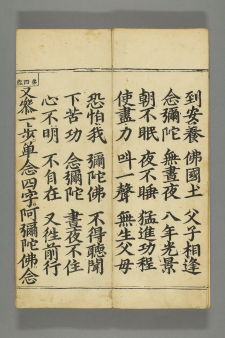 到安養　佛國土　父子相逢
念彌陀　無晝夜　八年光景
朝不眠　夜不睡　猛進功程
使盡力　叫一聲　無生父母
恐怕我　彌陀佛　不得聽聞
下苦功　念彌陀　晝夜不住
心不明　不自在　又往前行
又參一步单念四字阿彌陀佛念